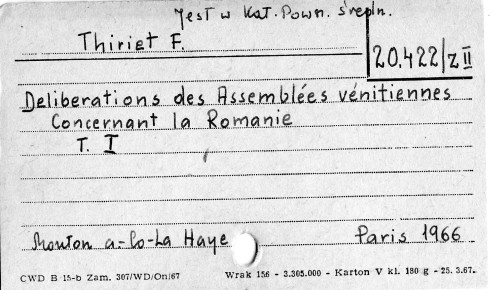 Jest w Kat. Pown. średn.
Thiriet F.
20.422/z II
Deliberations des Assemblées vénitiennes
Concernant la Romanie
T. I
Mouton a-Co-La Haye Paris 1966
CWD B 15-b Zam. 307/WD/On/67 Wrak 156 - 3.305.000 - Karton V kl. 180 g - 25.3.67.